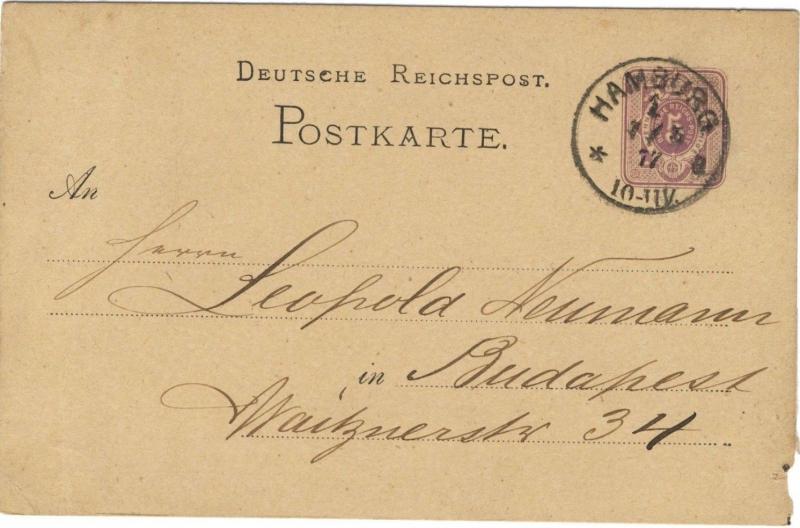 DEUTSCHE REICHSPOST.
POSTKARTE.
HAMBURG
1
77 a
* 10-11V.
An
Herrn
Leopold Neumann
in Budapest
Waitznerstr 34